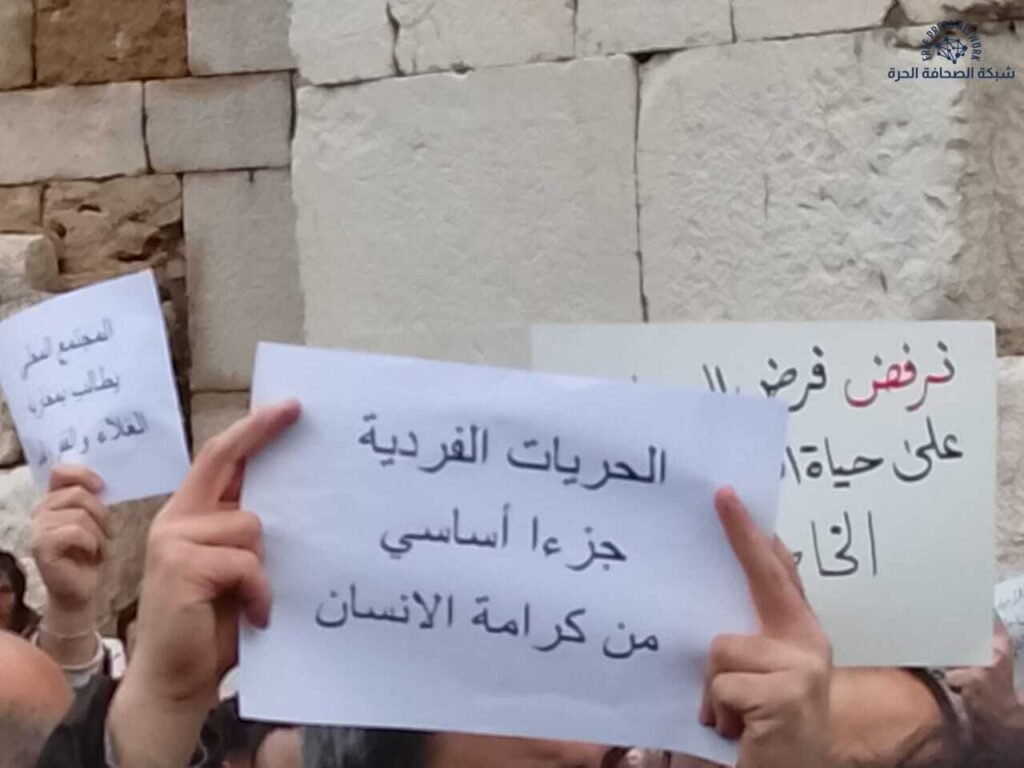 FREE PRESS NETWORK
شبكة الصحافة الحرة
المجتمع المدني
يطالب بمحاربة
الغلاء
الحريات الفردية
جزءا أساسي
من كرامة الانسان
نرفض فرض
على حياة